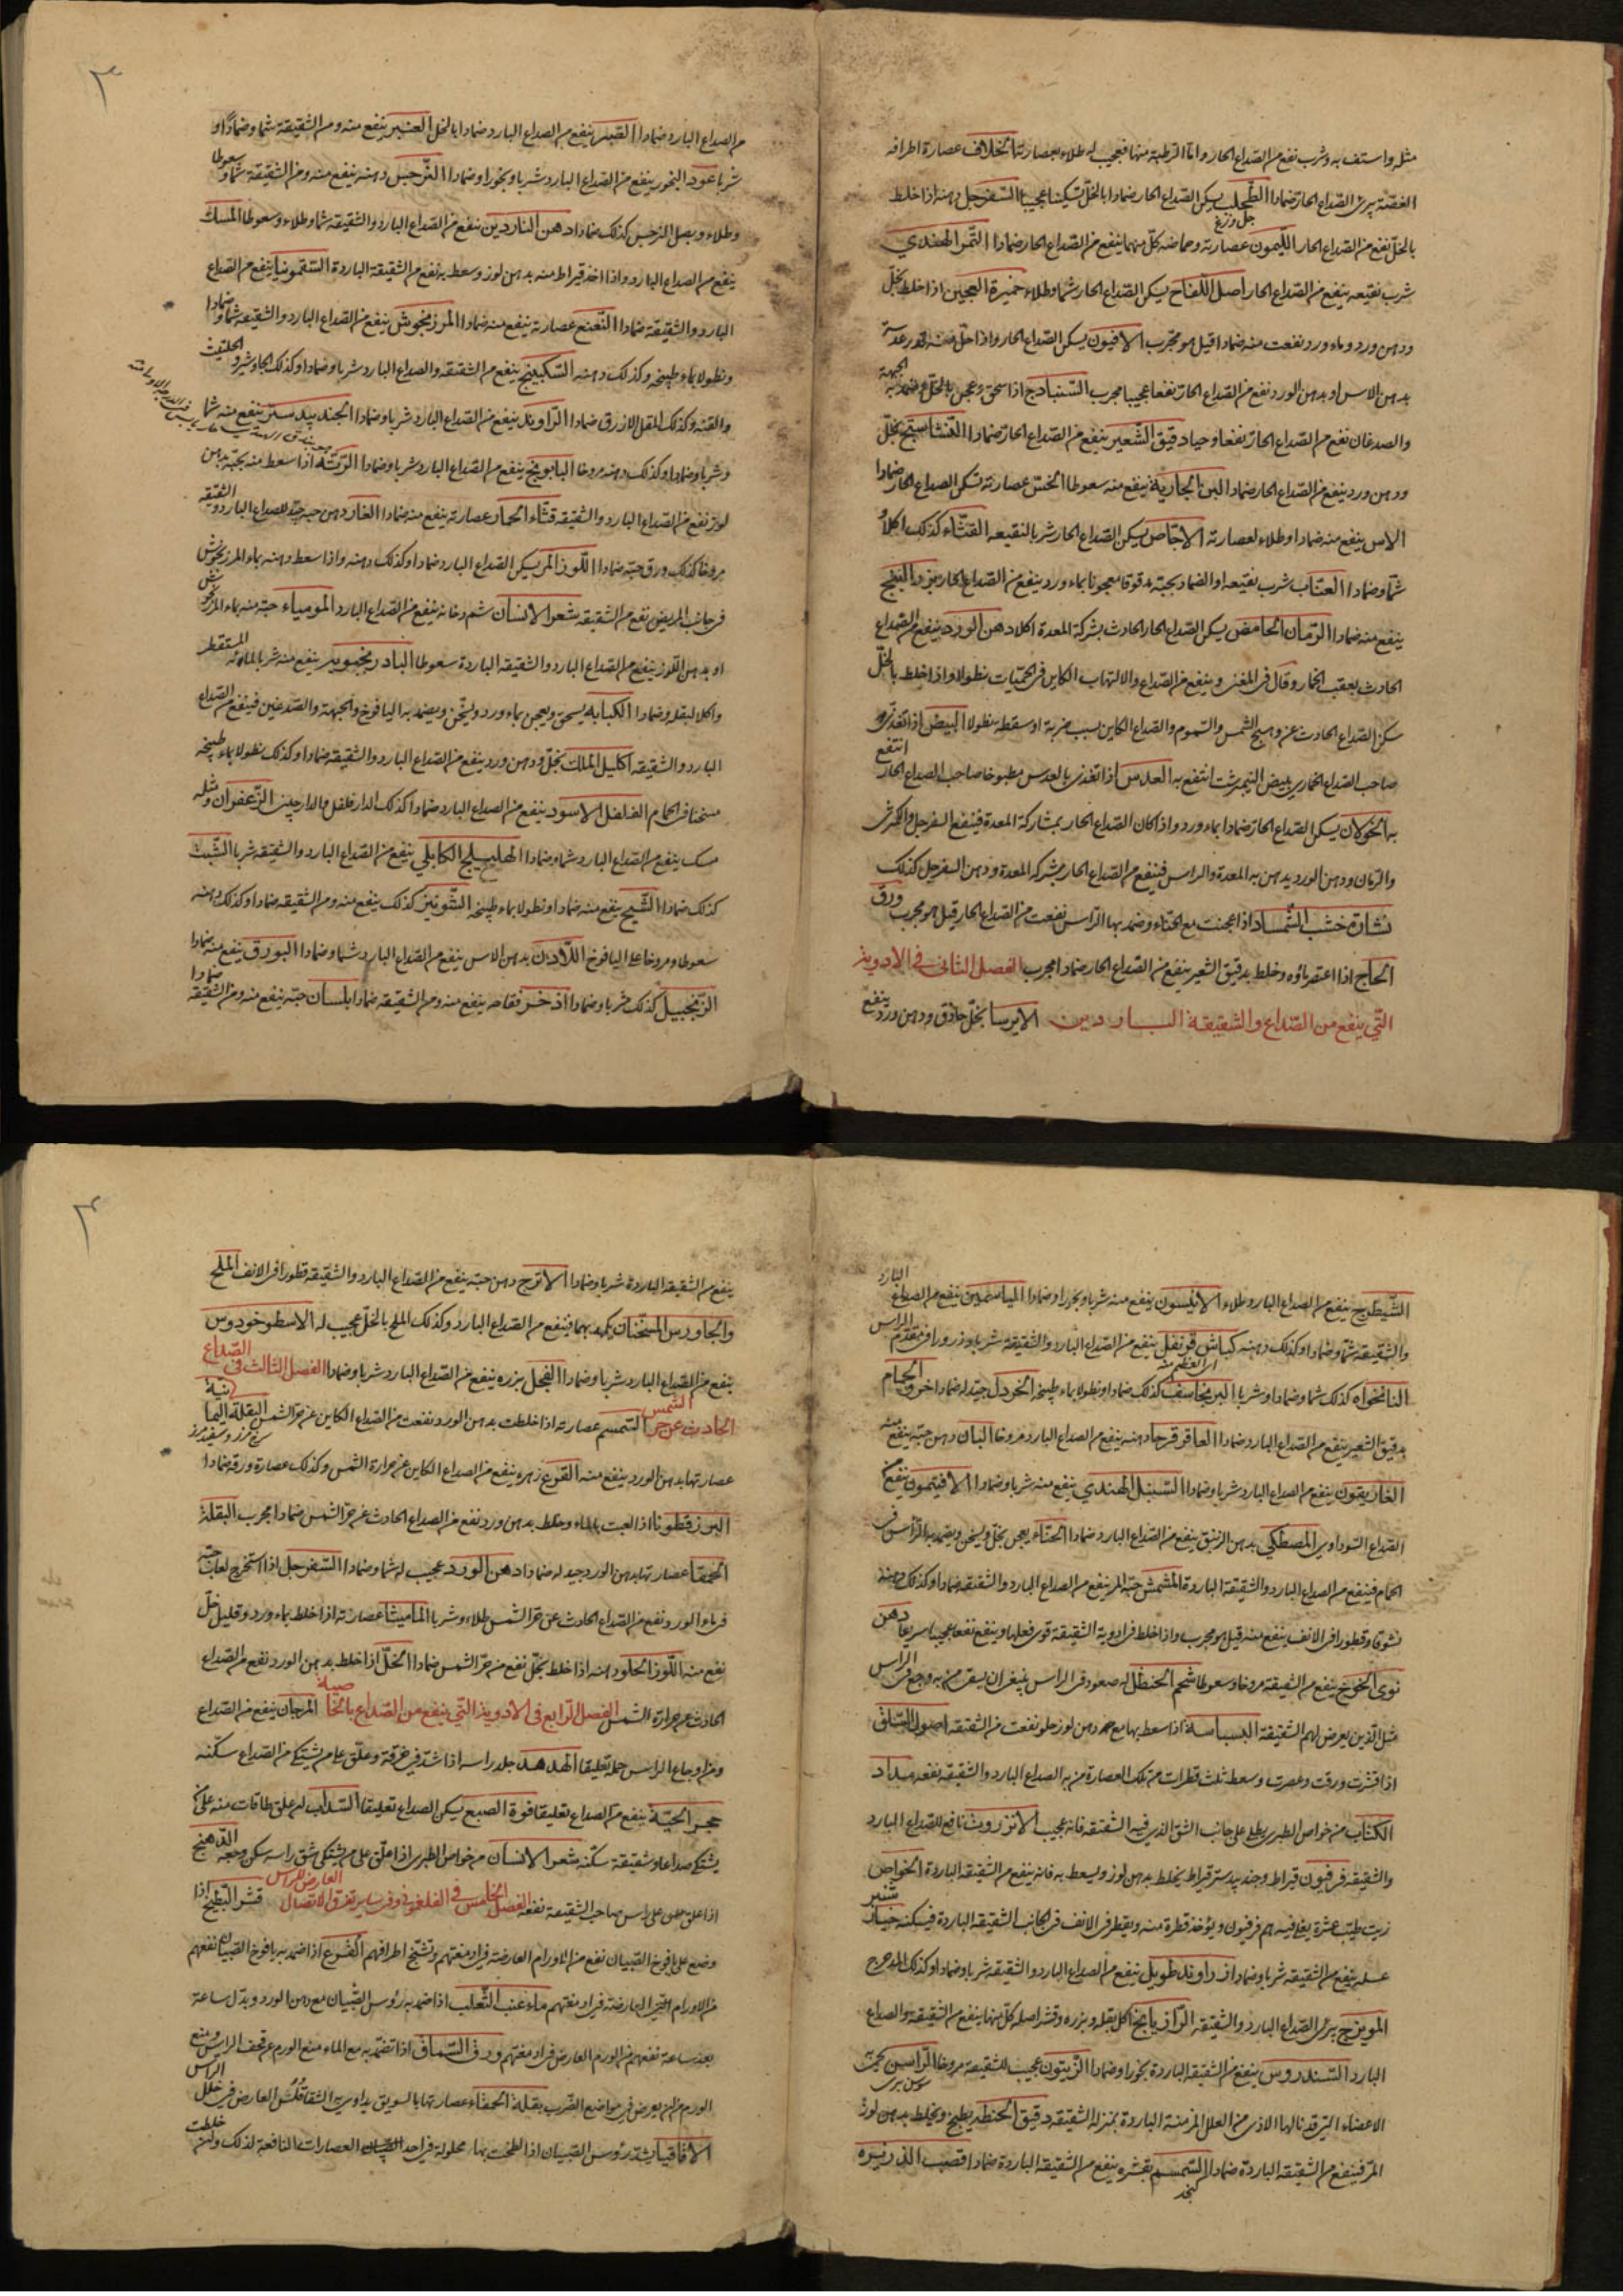 مثله واستف به وشرب نفع من الصداع الحار واما الرطبة منها فعجيب له طلاء بعصارتها الخلاف عصارة اطرافه
الغضة يبرئ الصداع الحار ضمادا الطحلب يسكن الصداع الحار ضمادا بالخل تسكينا عجيبا السفرجل دهنه اذا خلط
بالخل نفع من الصداع الحار الليمون عصارته وحماضه كل منهما ينفع من الصداع الحار ضمادا التمر الهندي
شرب نقيعه ينفع من الصداع الحار اصل اللفاح يسكن الصداع الحار شما وطلاء خميرة العجين اذا خلط بخل
ودهن ورد وماء ورد نفعت منه ضمادا قيل هو مجرب الافيون يسكن الصداع الحار واذا حل منه قدر عدسة
بدهن الاس او بدهن الورد نفع من الصداع الحار نفعا عجيبا مجرب السنبادج اذا سحق وعجن بالخل وضمد به الجبهة
والصدغان نفع من الصداع الحار نفعا وحيا دقيق الشعير ينفع من الصداع الحار ضمادا النشاستج بخل
ودهن ورد ينفع من الصداع الحار ضمادا لبن الجارية ينفع منه سعوطا الخس عصارته تسكن الصداع الحار ضمادا
الاس ينفع منه ضمادا وطلاء لعصارته الاجاص يسكن الصداع الحار شربا لنقيعه القثاء كذلك اكلا و
شما وضمادا العناب شرب نقيعه او الضماد بحبه مدقوقا معجونا بماء ورد ينفع من الصداع الحار البنفسج
ينفع منه ضمادا الرمان الحامض يسكن الصداع الحار الحادث بشركة المعدة اكلا دهن الورد ينفع من الصداع
الحادث بعقب الخمار وقال في المغني وينفع من الصداع والالتهاب الكاين في الحميات نطولا واذا خلط بالخل
سكن الصداع الحادث عن وهج الشمس والسموم والصداع الكاين بسبب ضربة او سقطة نطولا البيض اذا تغذى به
صاحب الصداع الخماري ببيض النيمرشت انتفع به العدس اذا تغذى بالعدس مطبوخا صاحب الصداع الحار انتفع
به الخولان يسكن الصداع الحار ضمادا بماء ورد واذا كان الصداع الحار بمشاركة المعدة فينفع السفرجل والكمثرى
والرمان ودهن الورد يدهن به المعدة والراس فينفع من الصداع الحار بشركة المعدة ودهن السفرجل كذلك
نشارة خشب الشمساد اذا عجنت مع الحناء وضمد بها الراس نفعت من الصداع الحار قيل هو مجرب ورق
الحاج اذا اعتصر ماؤه وخلط بدقيق الشعير ينفع من الصداع الحار ضمادا مجرب الفصل الثاني في الادوية
التي ينفع من الصداع والشقيقة الباردين الايرسا بخل حاذق ودهن ورد ينفع
من الصداع البارد ضمادا القنبر ينفع من الصداع البارد ضمادا بالخل العنبر ينفع منه ومن الشقيقة شما وضمادا او
شربا عود البخور ينفع من الصداع البارد شربا وبخورا وضمادا النرجس دهنه ينفع منه ومن الشقيقة شما و سعوطا
وطلاء وبصل النرجس كذلك ضمادا دهن الناردين ينفع من الصداع البارد والشقيقة شما وطلاء وسعوطا المسك
ينفع من الصداع البارد واذا اخذ قيراط منه بدهن لوز وسعط به نفع من الشقيقة الباردة السقمونيا ينفع من الصداع
البارد والشقيقة ضمادا النعنع عصارته ينفع منه ضمادا المرزنجوش ينفع من الصداع البارد والشقيقة شما و ضمادا
ونطولا بماء طبيخه وكذلك دهنه السكبينج ينفع من الشقيقة والصداع البارد شربا وضمادا وكذلك الجاوشير والحلتيت
والقنه وكذلك المقل الازرق ضمادا الراوند ينفع من الصداع البارد شربا وضمادا الجندبيدستر ينفع منه شما
وشربا وضمادا وكذلك دهنه مروخا البابونج ينفع من الصداع البارد شربا وضمادا الرتة اذا سعط منه بحبة بدهن
لوز نفع من الصداع البارد والشقيقه قثاء الحمار عصارته ينفع منه ضمادا الغار دهن حبه جيد للصداع البارد والشقيقه
مروخا كذلك ورق حبه ضمادا اللوز المر يسكن الصداع البارد ضمادا وكذلك دهنه واذا سعط دهنه بماء المرزنجوش
في جانب المريض نفع من الشقيقه شعر الانسان شم دخانه ينفع من الصداع البارد المومياء حبة منه بماء المرزنجوش
او بدهن اللوز ينفع من الصداع البارد والشقيقه الباردة سعوطا البادرنجبويه ينفع منه شربا لمائه المستقطر
واكلا لبقله وضمادا الكبابه يسحق ويعجن بماء ورد ويسخن ويضمد به اليافوخ والجبهة والصدغين فينفع من الصداع
البارد والشقيقه اكليل الملك بخل ودهن ورد ينفع من الصداع البارد والشقيقه ضمادا وكذلك نطولا بماء طبيخه
مسخنا في الحمام الفلفل الاسود ينفع من الصداع البارد ضمادا كذلك الدارفلفل والدارچيني الزعفران ومثله
مسك ينفع من الصداع البارد شما وضمادا الهليلج الكابلي ينفع من الصداع البارد والشقيقه شربا الشبت
كذلك ضمادا الشيح ينفع منه ضمادا ونطولا بماء طبيخه الشونيز كذلك ينفع منه ومن الشقيقه ضمادا وكذلك دهنه
سعوطا ومروخا على اليافوخ اللادن بدهن الاس ينفع من الصداع البارد شما وضمادا البورق ينفع منه ضمادا
الزنجبيل كذلك شربا وضمادا اذخر فقاحه ينفع منه ومن الشقيقه ضمادا بلسان حبه ينفع منه ومن الشقيقه ضمادا
الشيطرج ينفع من الصداع البارد طلاء الانيسون ينفع منه شربا وبخورا وضمادا الياسمين ينفع من الصداع البارد
والشقيقه شما وضمادا وكذلك دهنه كباش قرنفل ينفع من الصداع البارد والشقيقه شربا وذرورا في مقدم الراس
النانخواه كذلك شما وضمادا وشربا البرنجاسف كذلك ضمادا ونطولا بماء طبيخه الخردل جيد له ضمادا خرؤ الحمام
بدقيق الشعير ينفع من الصداع البارد ضمادا العاقرقرحا دهنه ينفع من الصداع البارد مروخا البان دهن حبه ينفع منه
الغاريقون ينفع من الصداع البارد شربا وضمادا السنبل الهندي ينفع منه شربا وضمادا الافتيمون ينفع من
الصداع السوداوي المصطكي بدهن الزنبق ينفع من الصداع البارد ضمادا الحناء يعجن بخل ويسخن ويضمد به الراس في
الحمام فينفع من الصداع البارد والشقيقة الباردة المشمش حبه المر ينفع من الصداع البارد والشقيقه ضمادا وكذلك دهنه
نشوقا وقطورا في الانف ينفع منه قيل هو مجرب واذا خلط في ادوية الشقيقة قوى فعلها وينفع نفعا عجيبا سريعا دهن
نوى الخوخ ينفع من الشقيقة مروخا وسعوطا شحم الحنظل له صعود في الراس ينبغي ان يسقى من به وجع في الراس
مثل الذين يعرض لهم الشقيقة البسباسة اذا سعط بها مع دهن لوز حلو نفعت من الشقيقه اصول السلق
اذا قشرت ودقت وعصرت وسعط ثلث قطرات من تلك العصارة من به الصداع البارد والشقيقه نفعه مداد
الكتاب من خواص الطبري يطلى على جانب الشق الذي فيه الشقيقه فانه عجيب الانزروت نافع للصداع البارد
والشقيقه فرفيون قيراط وجندبيدستر قيراط يخلط بدهن لوز ويسعط به فانه ينفع من الشقيقه الباردة الخواص
زيت طيب عشرة يغلى فيه درهم فرفيون ويؤخذ قطرة منه ويقطر في الانف في الجانب الشقيقه الباردة فيسكنه خيار شنبر
عسله ينفع من الشقيقه شربا وضمادا زراوند طويل ينفع من الصداع البارد والشقيقه شربا وضمادا وكذلك المدحرج
المويزج يبرئ الصداع البارد والشقيقه الرازيانج اكل بقله وبزره وقشر اصله كل منها ينفع من الشقيقه والصداع
البارد السندروس ينفع من الشقيقه الباردة بخورا وضمادا الزيتون عجيب للشقيقه مروخا الراسن
الاعضاء التي قد نالها الاذى من العلل المزمنة الباردة بمنزلة الشقيقه دقيق الحنطه يطبخ ويخلط بدهن لوز
المر فينفع من الشقيقه الباردة ضمادا السمسم بقشره ينفع من الشقيقه الباردة ضمادا قصب الذريره
ينفع من الشقيقه الباردة شربا وضمادا الاترج دهن حبه ينفع من الصداع البارد والشقيقه قطورا في الانف الملح
والجاورس المسخنان يكمد بهما فينفع من الصداع البارد وكذلك الملح بالخل عجيب له الاسطوخودوس
ينفع من الصداع البارد شربا وضمادا الفجل بزره ينفع من الصداع البارد شربا وضمادا الفصل الثالث في الصداع
الحادث عن حر الشمس السمسم عصارته اذا خلطت بدهن الورد نفعت من الصداع الكاين عن حر الشمس البقلة اليمانية
عصارتها بدهن الورد ينفع منه القرع زهره ينفع من الصداع الكاين عن حرارة الشمس وكذلك عصارة ورقه ضمادا
البزرقطونا اذا لعبت بالماء وخلط بدهن ورد نفع من الصداع الحادث عن حر الشمس ضمادا مجرب البقلة
الحمقا عصارتها بدهن الورد جيد له ضمادا دهن الورد عجيب له شما وضمادا السفرجل اذا استخرج لعاب حبه
في ماء الورد نفع من الصداع الحادث عن حر الشمس طلاء وشربا الماميثا عصارته اذا خلط بماء ورد وقليل خل
نفع منه اللوز الحلو دهنه اذا خلط بخل نفع من حر الشمس ضمادا الخل اذا خلط بدهن الورد نفع من الصداع
الحادث عن حرارة الشمس الفصل الرابع في الادوية التي ينفع من الصداع بالخاصية المرجان ينفع من الصداع
ومن اوجاع الراس جملة تعليقا الهدهد جلد راسه اذا شد في خرقة وعلق على من يشتكي من الصداع سكنه
حجر الحية ينفع من الصداع تعليقا فوة الصبغ يسكن الصداع تعليقا السذاب لم علق طاقات منه على من
يشتكي صداعا وشقيقة سكنه شعر الانسان من خواص الطبري اذا علق على من يشتكي شق راسه سكن وجعه الدهنج
اذا علق على راس صاحب الشقيقه نفعه الفصل الخامس في الفلغموني وفي ساير تفرق الاتصال العارض للراس قشر البطيخ اذا
وضع على يافوخ الصبيان نفع من الاورام العارضة في ادمغتهم وتشنج اطرافهم القرع اذا ضمد به يافوخ الصبيان نفعهم
من الاورام العارضة في ادمغتهم ماء عنب الثعلب اذا ضمد به رؤس الصبيان مع دهن الورد وبدل ساعة
بعد ساعة نفعهم من الورم العارض في ادمغتهم ورق السماق اذا تضمد به مع الماء منع الورم عن قحف الراس ومنع
الورم من ان يعرض في مواضع الضرب بقلة الحمقاء عصارتها بالسويق يداوى به الشقاقلس العارض في خلل الراس
الاقاقيا يشد رؤس الصبيان اذا لطخت بها محلولة في احد العصارات النافعة لذلك وان خلطت